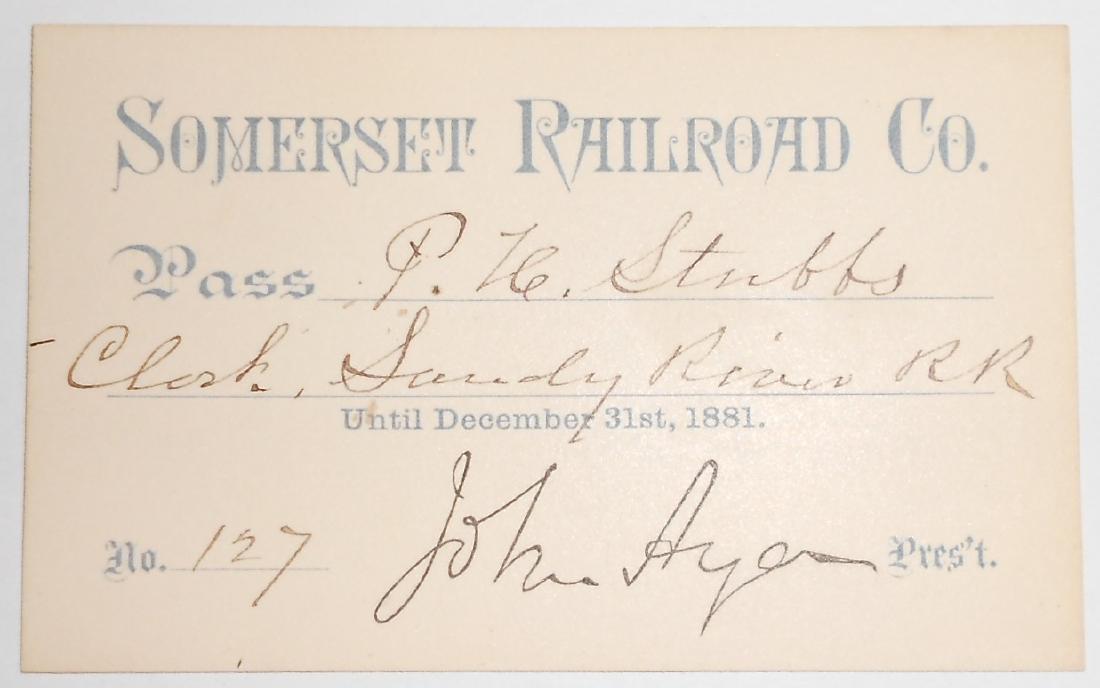 SOMERSET RAILROAD CO.
Pass P. H. Stubbs
Clerk, Sandy River RR
Until December 31st, 1881.
No. 127 John Ayer Pres't.